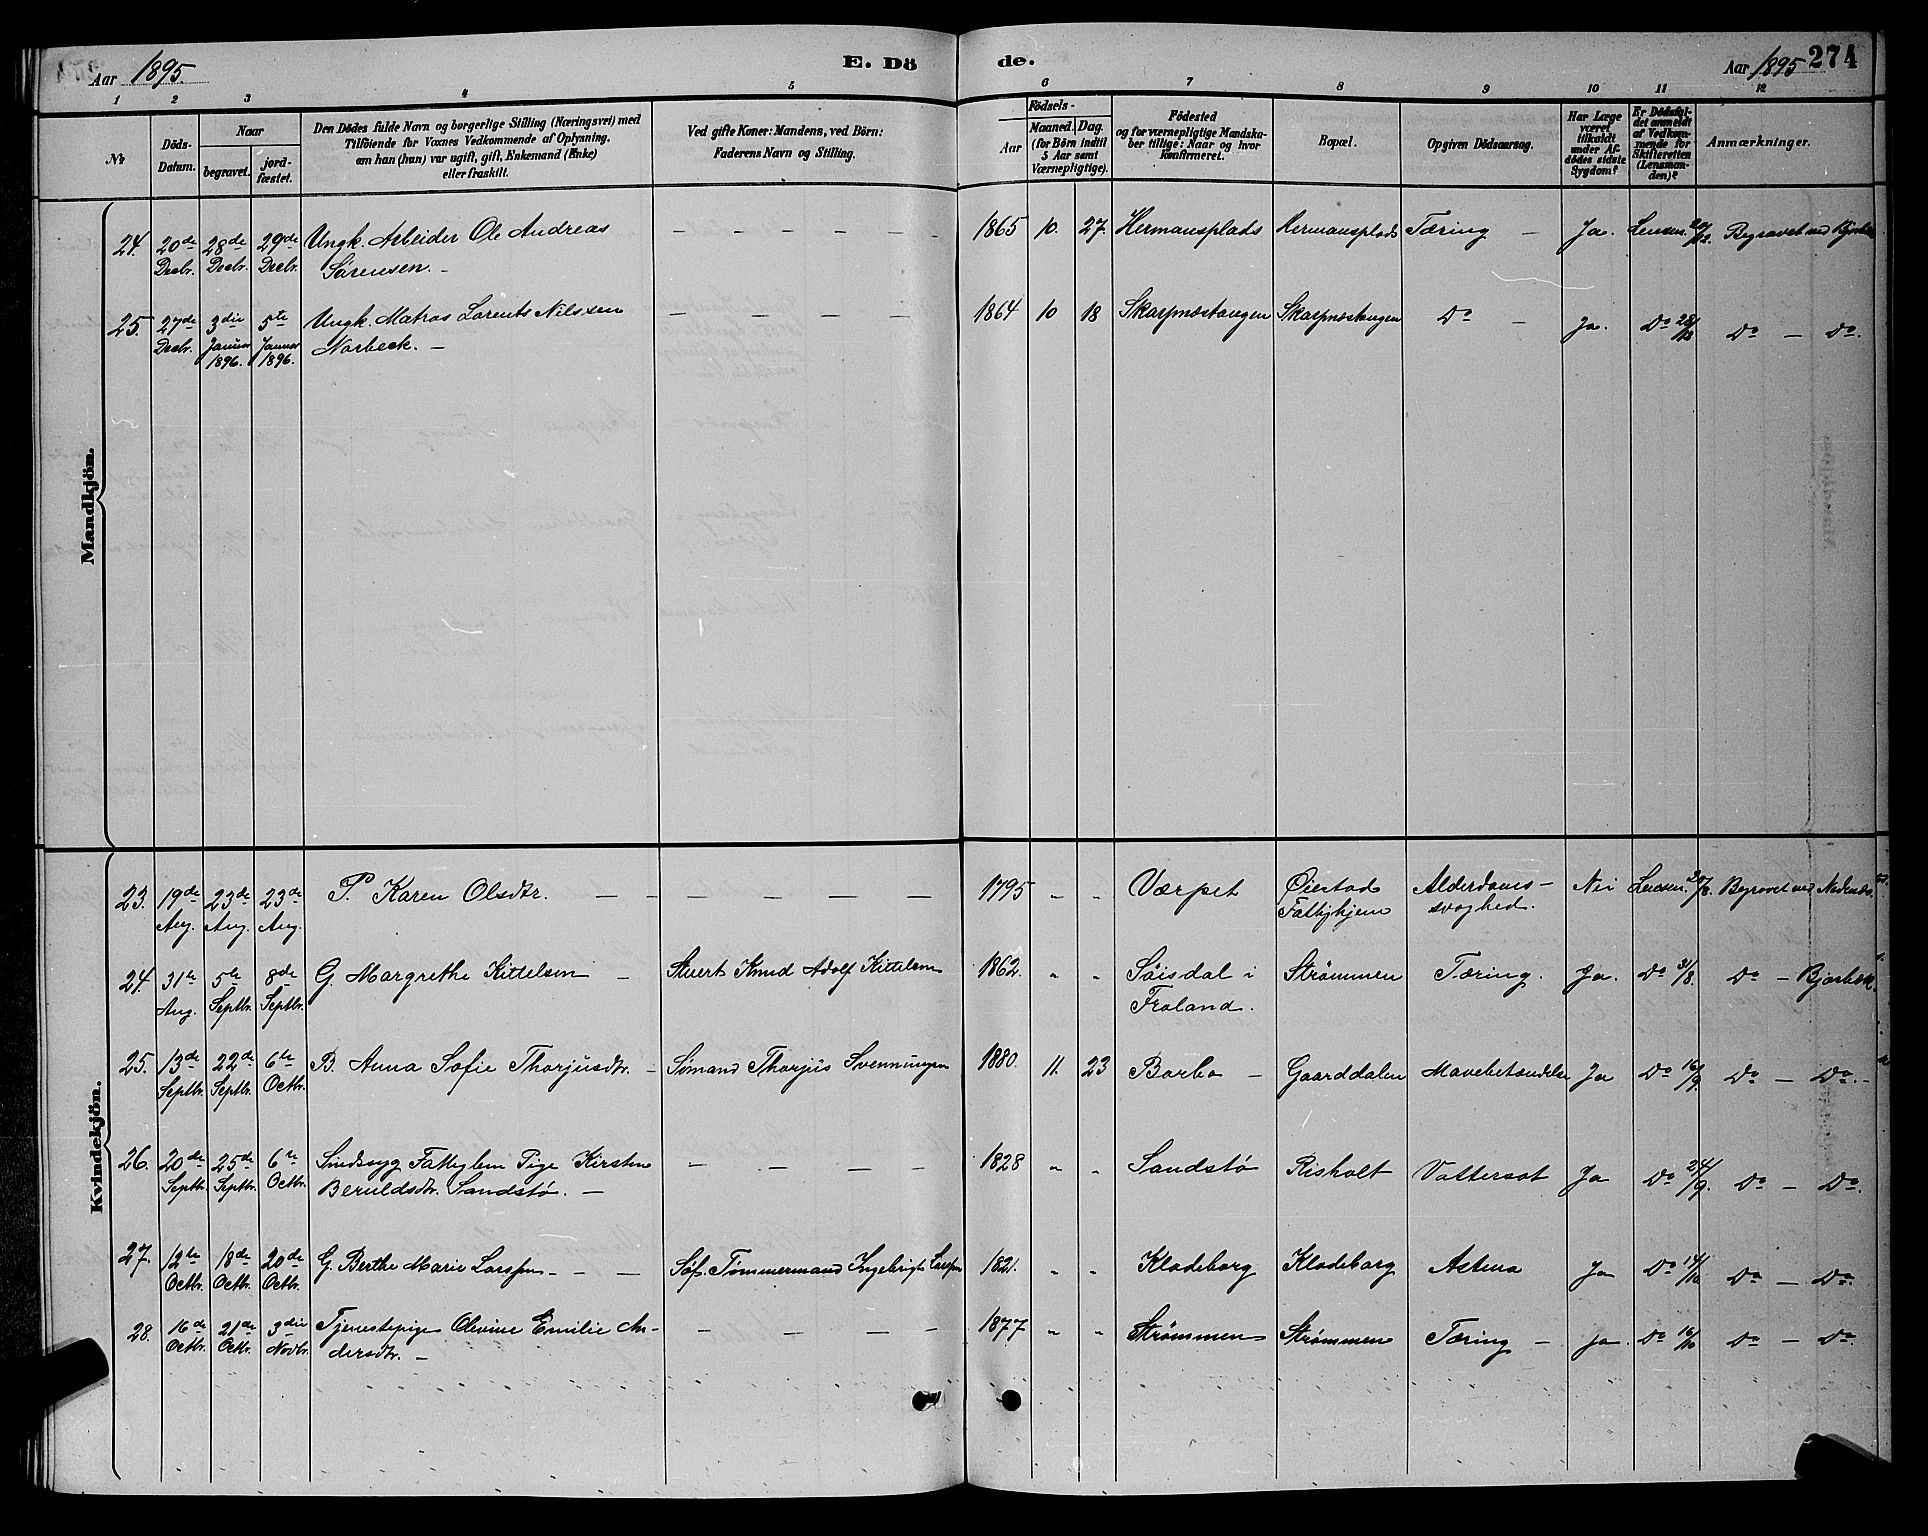 Aar 1895. E. Dö
1 2 3 4 5
№ Döds-Datum. Naar begravet. jord-fæstet. Den Dödes fulde Navn og borgerlige Stilling (Næringsvei) med Tilföiende for Voxnes Vedkommende af Oplysning, om han (hun) var ugift, gift, Enkemand (Enke) eller fraskilt. Ved gifte Koner: Mandens, ved Börn: Faderens Navn og Stilling.
de. Aar 1895 274
6 7 8 9 10 11 12
Födsels- Aar Maaned. Dag. (for Börn indtil 5 Aar samt Værnepligtige). Födested og for værnepligtige Mandska-ber tillige: Naar og hvor konfirmeret. Bopæl. Opgiven Dödsaarsag. Har Læge været tilkaldt under Af-dödes sidste Sygdom? Er Dödsfal-det anmeldt af Vedkom-mende for Skifteretten (Lensman-den)? Anmærkninger.
Mandkjön.
24. 20de Decbr. 28de Decbr. 29de Decbr. Ungk. Arbeider Ole Andreas Sörensen. — — — — — 1865 10. 27 Hermansplads Hermansplads Tæring — Ja. Lensm. 20/12. Begravet ved Bjorbek
25. 27de Decbr. 3die Januar 1896. 5te Januar 1896. Ungk. Matros Lorents Nilssen Norbeck. — — — — — 1864 10 18 Skarpnæstangen Skarpnæstangen Do — Ja. Do 28/12 Do — Do.
Kvindekjön.
23. 19de Aug. 23de Aug. 23de Aug. P. Karen Olsdtr. — — — — — — 1795 " " Værpet Øiestad Fattighjem Alderdoms-svaghed. Nei Lensm. 20/8. Begravet ved Nedenæs.
24. 31te Aug. 5te Septbr. 8de Septbr. G. Margrethe Kittelsen — Stuert Knud Adolf Kittelsen 1862. " " Söisdal i Froland. Strømmen Tæring. Ja. Do 31/8. Do — Bjorbek.
25. 13de Septbr. 22de Septbr. 6te Octbr. B. Anna Sofie Thorjusdtr. — Sømand Thorjus Svenningsen 1880. 11. 23 Barbo — Gaarddalen Mavebetændelse Ja Do 16/9. Do — Do. —
26. 20de Septbr. 25de Septbr. 6te Octbr. Sindssyg Fattiglem Pige Kirsten Beruldsdtr. Sandstø. — — — — — 1828 " " Sandstø Risholt Vattersot Ja Do 24/9. Do — Do.
27. 12te Octbr. 18de Octbr. 20de Octbr. G. Berthe Marie Larssen — — — Søf. Tømmermand Ingebrigt Larssen 1821. " " Klodeborg Klodeborg Astma Ja Do 14/10 Do — Do.
28. 16de Octbr. 21de Octbr. 3die Novbr. Tjenestepige Olevine Emilie An-dersdtr. — — — — — 1877 " " Strømmen Strømmen Tæring — Ja Do 16/10 Do — Do.